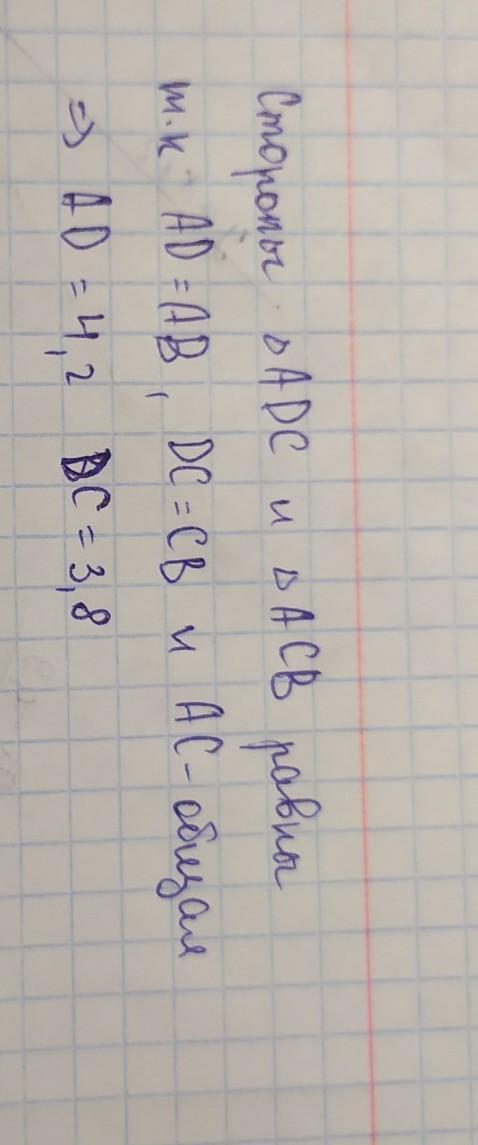 Стороны △ADC и △ACB равны
т.к AD = AB, DC = CB и AC - общая
=> AD = 4,2 DC = 3,8